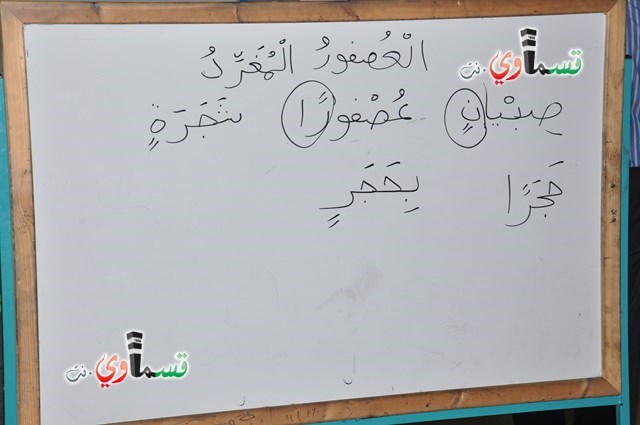 الْعُصفورُ الْمُغَرِّدُ
صِبْيانٍ عُصْفورًا شَجَرَةٍ
حَجَرًا بِحَجَرٍ
قسماوي.نت
قسماوي.نت